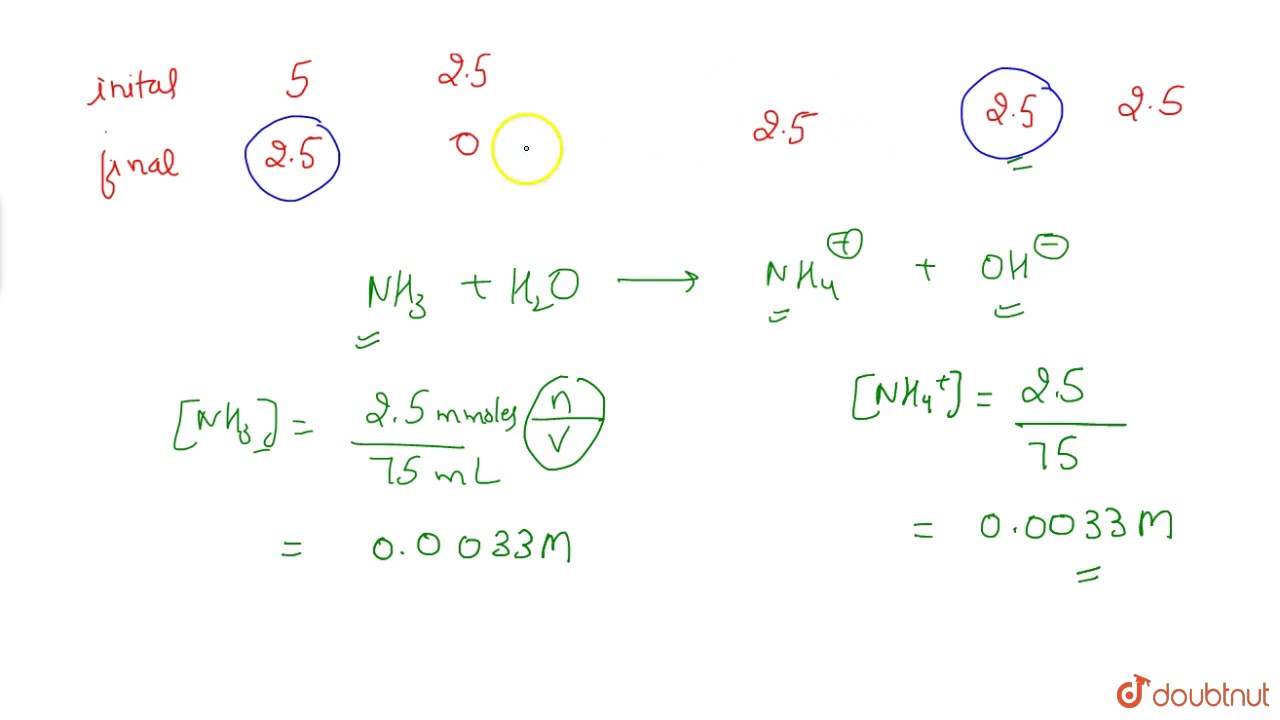 inital 5 2.5
final 2.5 0 2.5 2.5 2.5
NH₃ + H₂O ⟶ NH₄⊕ + OH⊖
[NH₃] = 2.5 mmoles / 75 mL n/V
[NH₄⁺] = 2.5 / 75
= 0.0033M
= 0.0033M
doubtnut